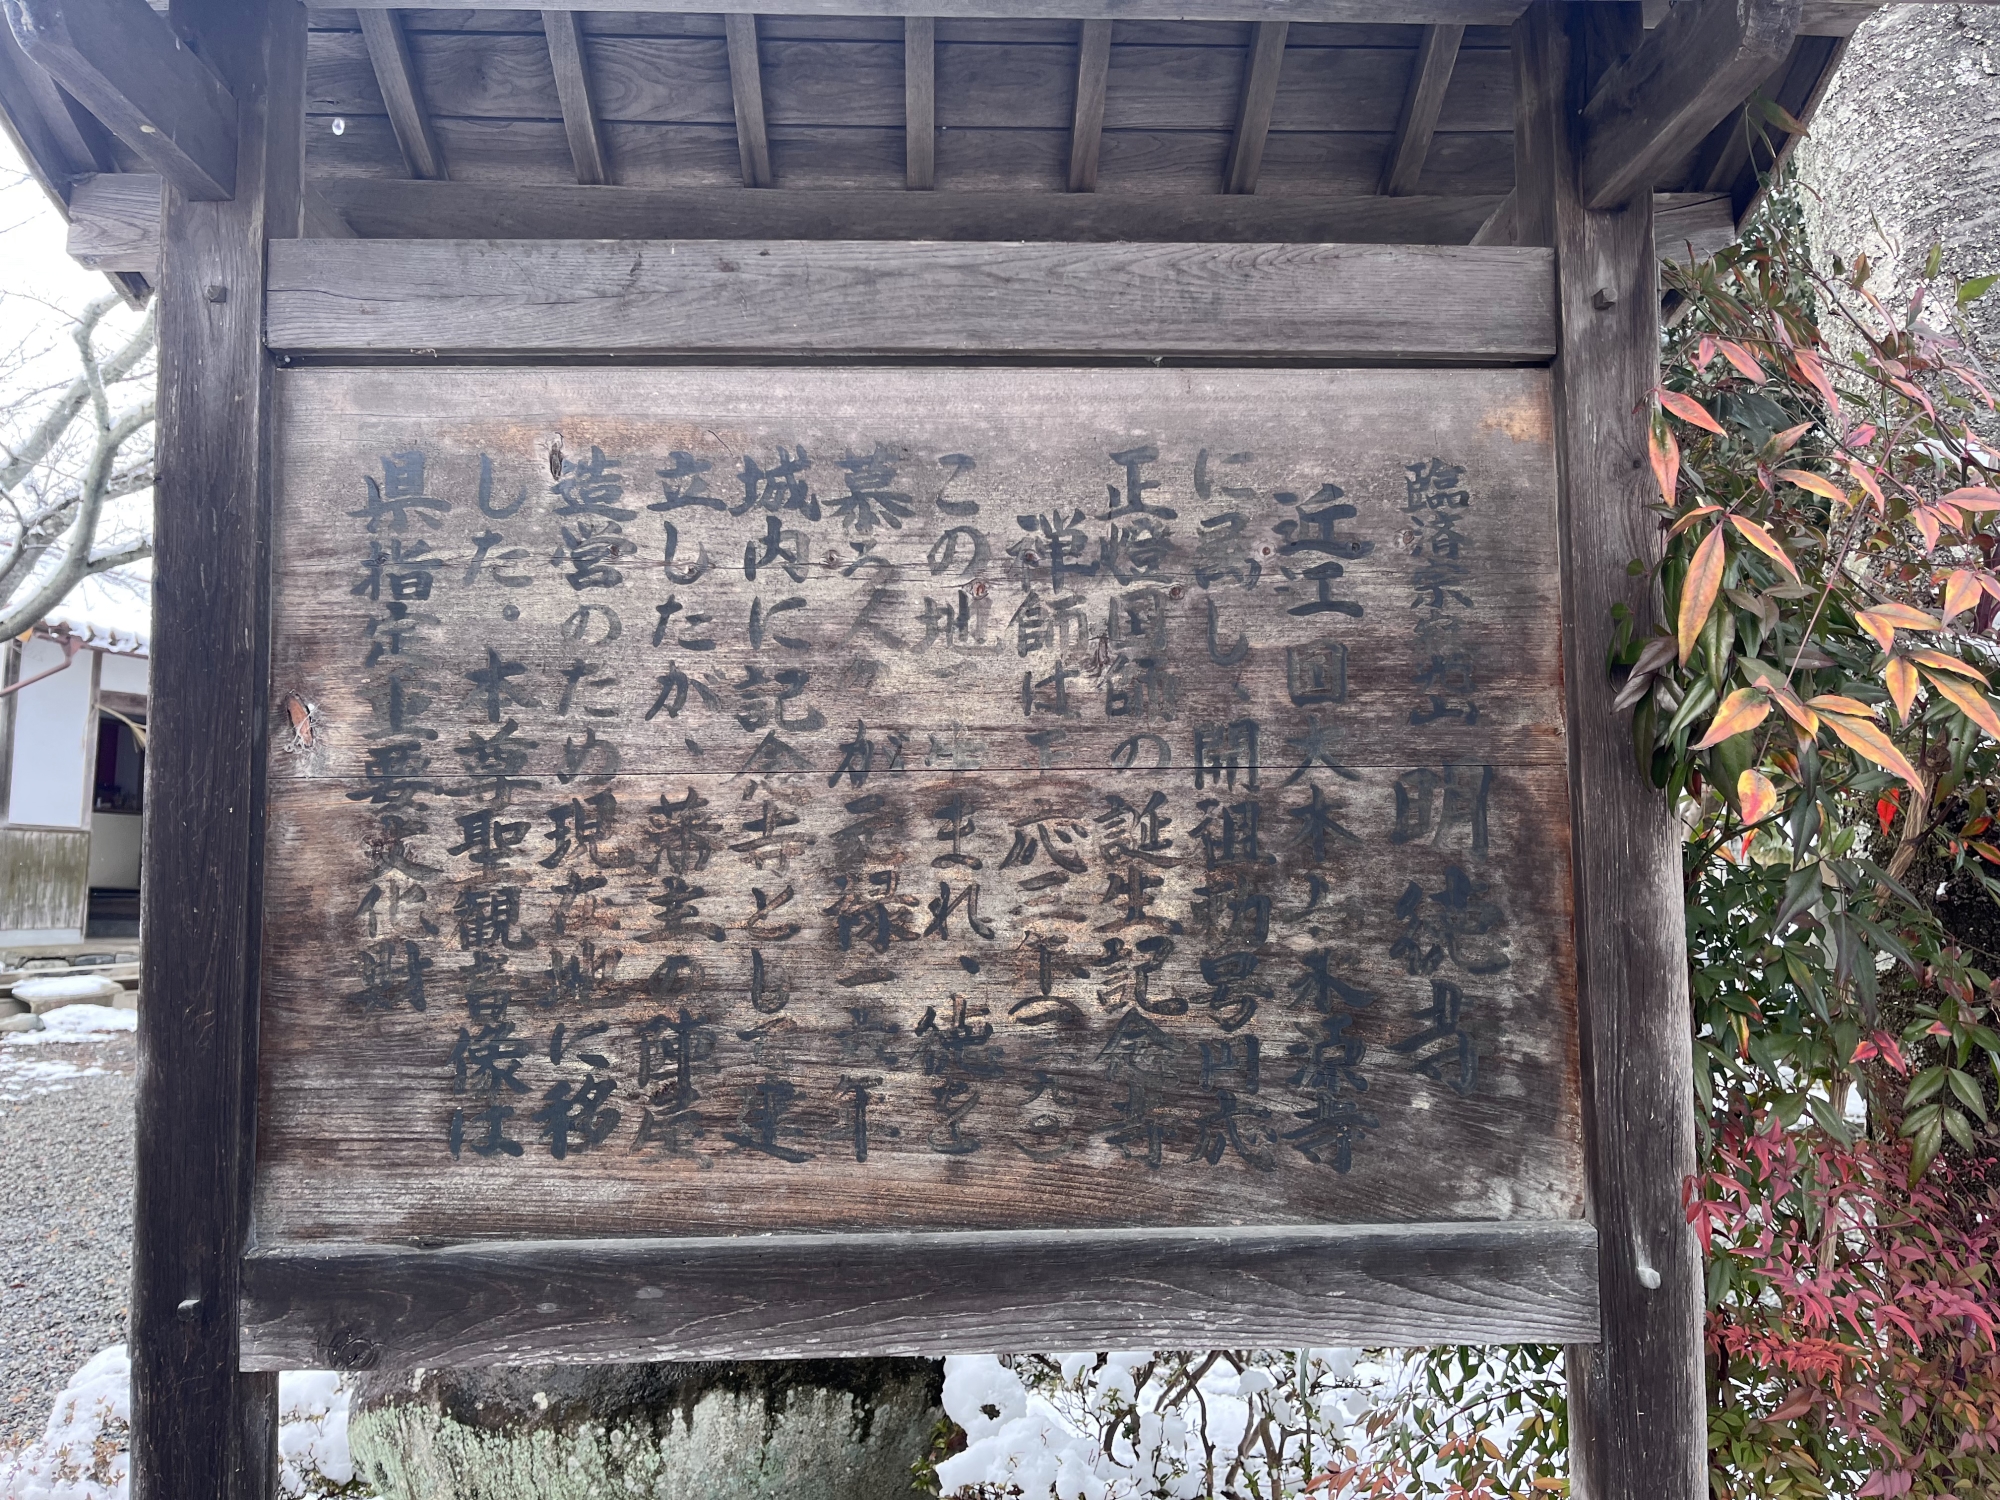 臨済宗 山 明徳寺
近江国大本山永源寺
に属し、開祖勅号円応
正燈国師の誕生記念寺
禅師は 応三年(一二九〇
この地に生まれ、徳を
慕う人 が元禄一六年
城内に記念寺として建
立したが、藩主の陣屋
造営のため現在地に移
した.本尊聖観音像は
県指定重要文化財